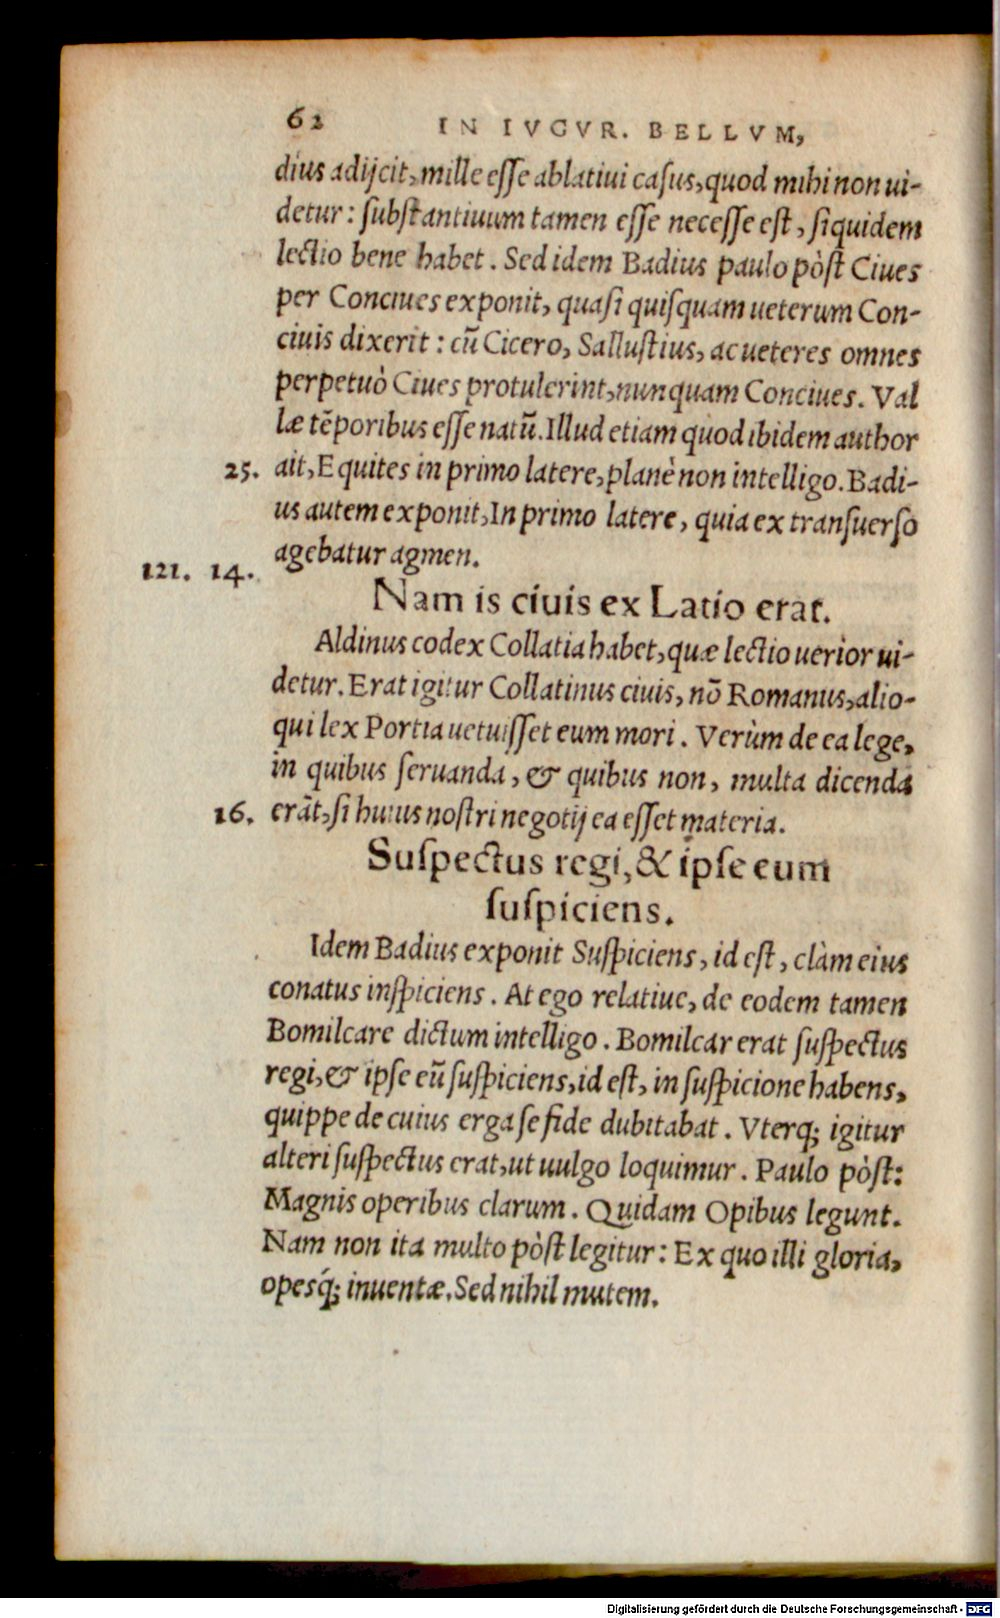 62 IN IVGVR. BELLVM,
dius adijcit, mille esse ablatiui casus, quod mihi non ui-
detur: substantiuum tamen esse necesse est, siquidem
lectio bene habet. Sed idem Badius paulo pòst Ciues
per Conciues exponit, quasi quisquam ueterum Con-
ciuis dixerit: cũ Cicero, Sallustius, ac ueteres omnes
perpetuò Ciues protulerint, nunquam Conciues. Val
læ tẽporibus esse natũ. Illud etiam quod ibidem author
25. ait, Equites in primo latere, planè non intelligo. Badi-
us autem exponit, In primo latere, quia ex transuerso
agebatur agmen.
121. 14.
Nam is ciuis ex Latio erat.
Aldinus codex Collatia habet, quæ lectio uerior ui-
detur. Erat igitur Collatinus ciuis, nõ Romanus, alio-
qui lex Portia uetuisset eum mori. Verùm de ea lege,
in quibus seruanda, & quibus non, multa dicenda
16. erãt, si huius nostri negotij ea esset materia.
Suspectus regi, & ipse eum
suspiciens.
Idem Badius exponit Suspiciens, id est, clàm eius
conatus inspiciens. At ego relatiue, de eodem tamen
Bomilcare dictum intelligo. Bomilcar erat suspectus
regi, & ipse eũ suspiciens, id est, in suspicione habens,
quippe de cuius erga se fide dubitabat. Vterq; igitur
alteri suspectus erat, ut uulgo loquimur. Paulo pòst:
Magnis operibus clarum. Quidam Opibus legunt.
Nam non ita multo pòst legitur: Ex quo illi gloria,
opesq́; inuentæ. Sed nihil mutem.
Digitalisierung gefördert durch die Deutsche Forschungsgemeinschaft - DFG